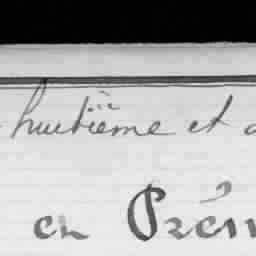 huitième et
en Prén